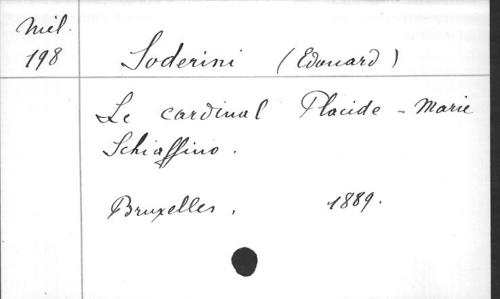 Mél.
198
Soderini (Edouard)
Le cardinal Placide - Marie
Schiaffino.
Bruxelles, 1889.